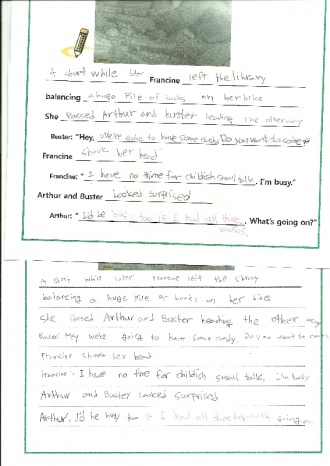 A short while later Francine left the library
balancing a huge pile of books on her bike
She passed Arthur and Buster heading the other way
Buster: "Hey, We're going to have some candy Do you want to come
Francine shook her head
Francine: "I have no time for childish small talk. I'm busy."
Arthur and Buster Looked surprised
Arthur: "I'd be busy too if I had all those
books. What's going on?"
A short while later Francine left the library
balancing a huge pile of books on her bike
She passed Arthur and Buster heading the other way
Buster: Hey we're going to have some candy. Do you want to come
Francine shook her head
Francine: I have no time for childish small talks. I'm busy
Arthur and Buster looked surprised
Arthur: I'd be busy too if I had all those going on